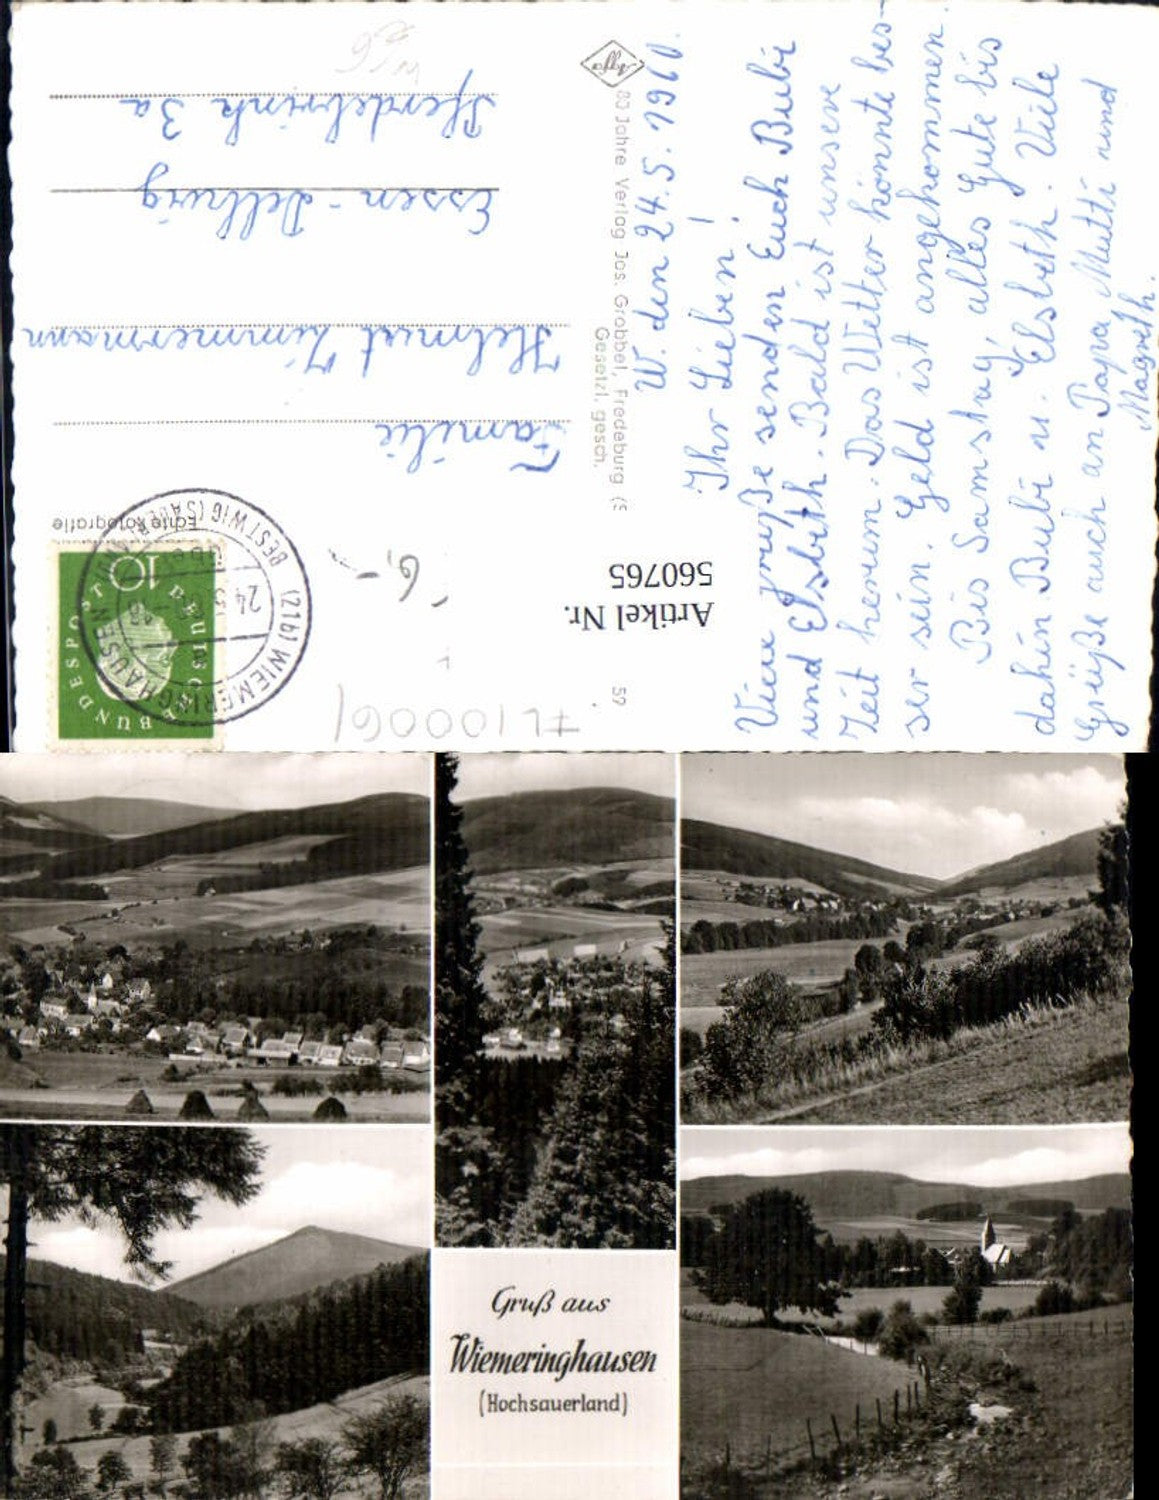 W. den 24.5.1960.
Ihr Lieben!
Viele Grüße senden Euch Bubi
und Elsbeth. Bald ist unsere
Zeit herum. Das Wetter könnte bes-
ser sein. Geld ist angekommen.
Bis Samstag, alles Gute bis
dahin Bubi u. Elsbeth. Viele
Grüße auch an Papa, Mutti und
Magreth.
Agfa
80 Jahre Verlag Jos. Grobbel, Fredeburg (S
Gesetzl. gesch.
59
Artikel Nr.
560765
6,-
FL10006/
Echte Fotografie
DEUTSCHE BUNDESPOST
10
(21b) WIEMERINGHAUSEN
BESTWIG (SAUERLAND)
24
Familie
Helmut Zimmermann
Essen-Dellwig
Pferdebrink 3a
Gruß aus
Wiemeringhausen
(Hochsauerland)